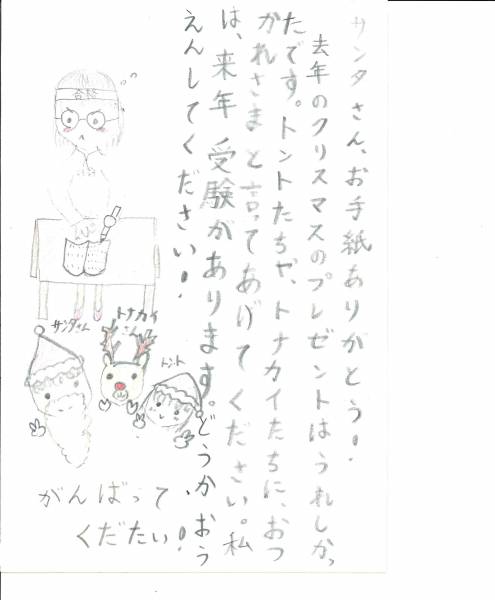 サンタさん、お手紙ありがとう!
去年のクリスマスのプレゼントはうれしかっ
たです。トントたちや、トナカイたちに、おつ
かれさまと言ってあげてください。私
は、来年受験があります。どうかおう
えんしてください!
合格
サンタさん
トナカイ
さん
トント
がんばって、
くだたい!